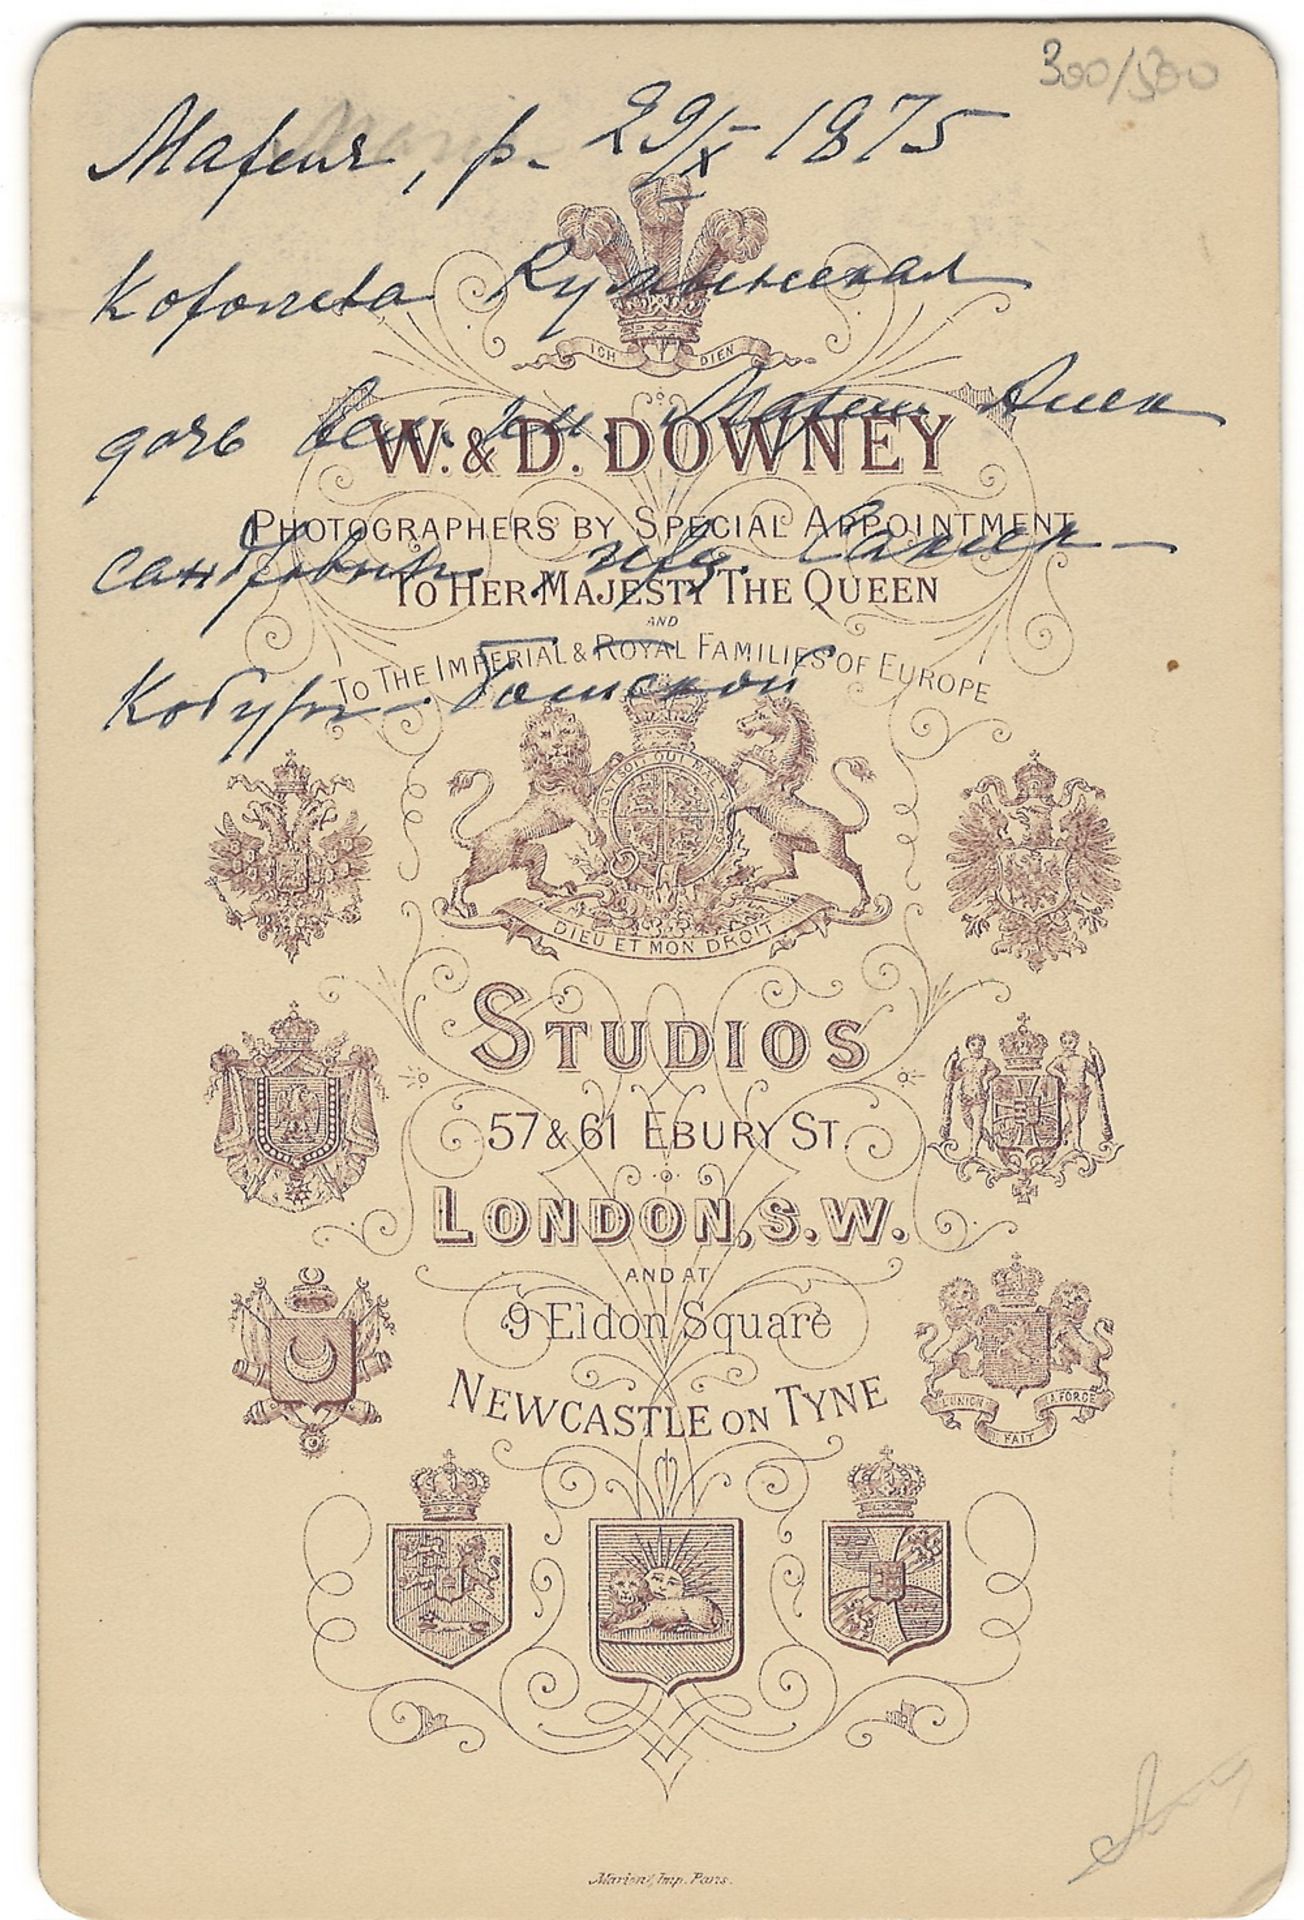 300/500
Мария, р. 29/X 1875
Королева Румынская
дочь Вел. Кн. Марии Алек
сандровны, герц. Саксен-
Кобург-Готской
ICH DIEN
W. & D. DOWNEY
PHOTOGRAPHERS BY SPECIAL APPOINTMENT
TO HER MAJESTY THE QUEEN
AND
TO THE IMPERIAL & ROYAL FAMILIES OF EUROPE
HONI SOIT QUI MAL Y
DIEU ET MON DROIT
STUDIOS
57 & 61 EBURY ST.
LONDON, S.W.
AND AT
9 Eldon Square
NEWCASTLE ON TYNE
L'UNION FAIT LA FORCE
Marion, Imp. Paris.